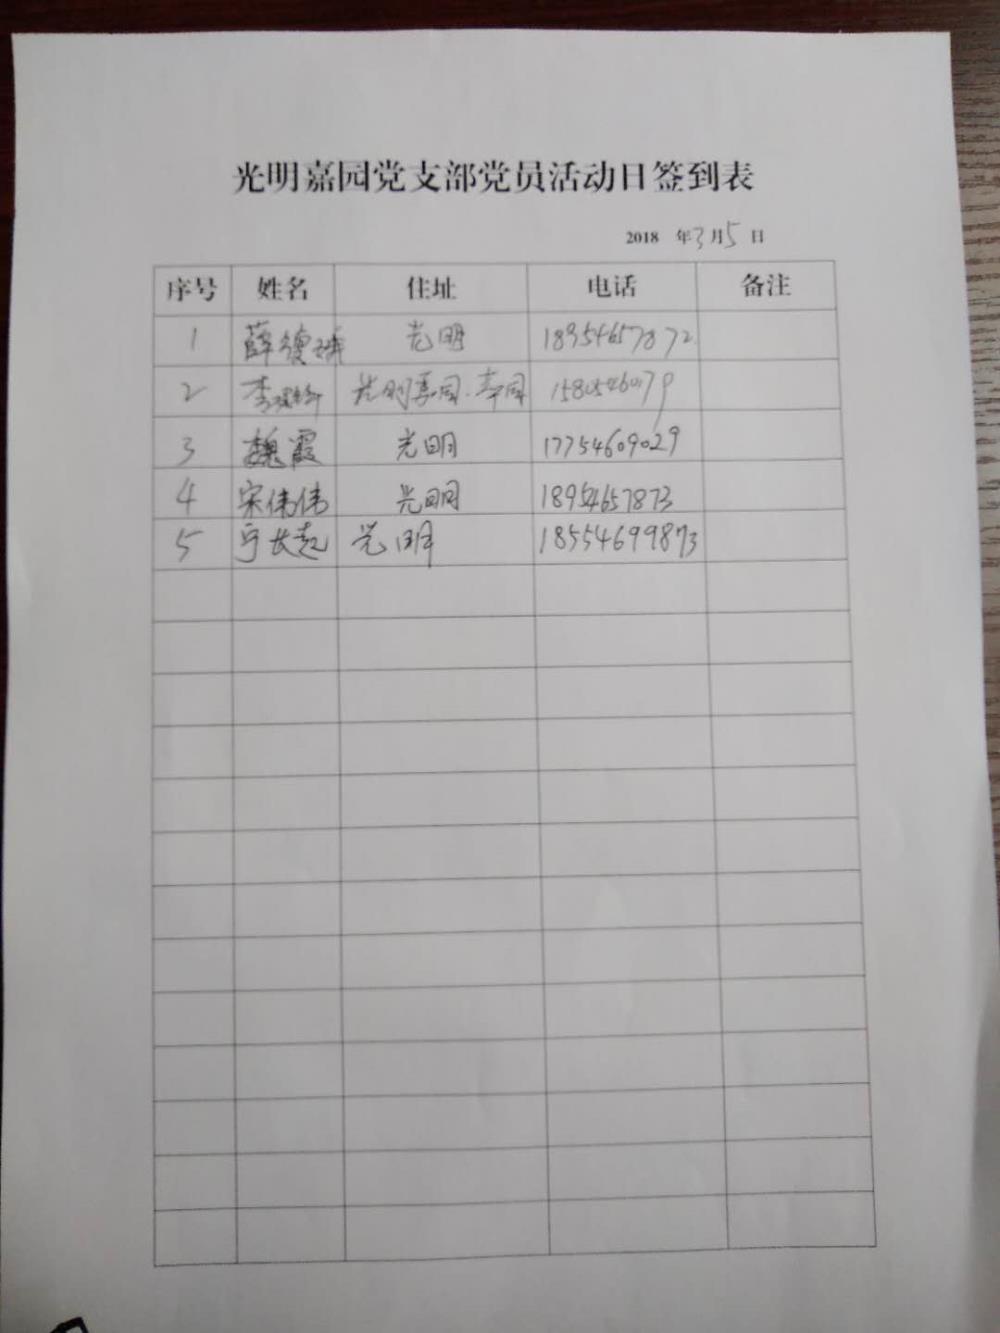 光明嘉园党支部党员活动日签到表
2018 年3月5日
序号 姓名 住址 电话 备注
1 薛德 光明 18954657872
2 李 光明嘉园 15805460179
3 魏霞 光明 17754609029
4 宋伟伟 光明 18954657873
5 宁长起 光明 18554699873